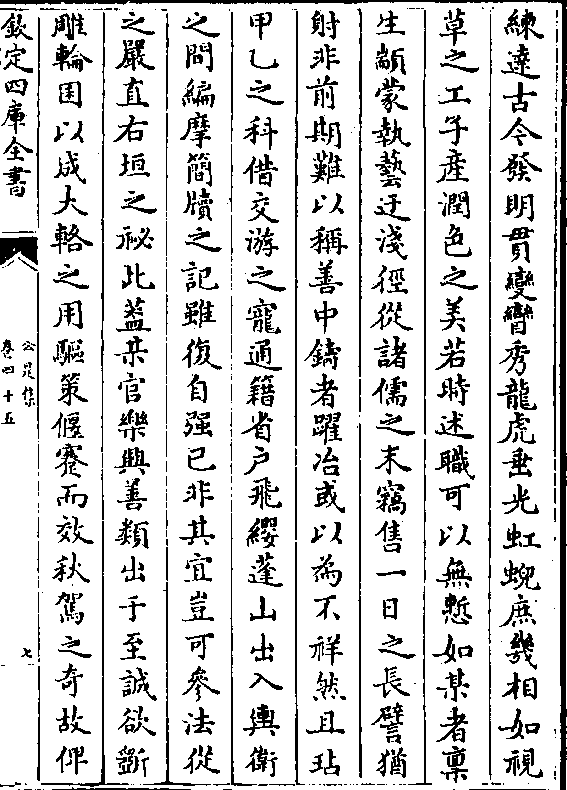 練達古今發明貫變響秀龍虎垂光虹蜺庶幾相如視
草之工子產潤色之美若時述職可以無慙如某者稟
生顓蒙執藝迂淺徑從諸儒之末竊售一日之長譬猶
射非前期難以稱善中鑄者躍冶或以為不祥然且玷
甲乙之科借交游之寵通籍省户飛纓蓬山出入輿衛
之間編摩簡牘之記雖復自强已非其宜豈可參法從
之嚴直右垣之祕此蓋某官樂與善類出于至誠欲斵
雕輪囷以成大輅之用驅策偃蹇而效秋駕之奇故俾
欽定四庫全書
公是集
卷四十五
七